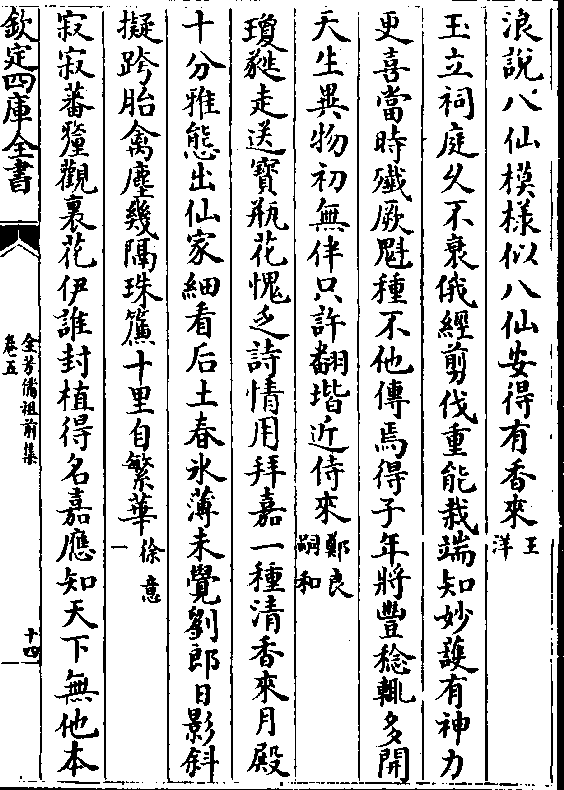 浪說八仙模樣似八仙安得有香來王洋
玉立祠庭久不衰俄經剪伐重能栽端知妙護有神力
更喜當時殱厥魁種不他傳焉得子年將豐稔輙多開
天生異物初無伴只許翻堦近侍來鄭良嗣和
瓊蕤走送寳瓶花愧乏詩情用拜嘉一種清香來月殿
十分雅態出仙家細看后土春氷薄未覺劉郎日影斜
擬跨胎禽塵幾隔珠簾十里自繁華徐意一
寂寂蕃釐觀裏花伊誰封植得名嘉應知天下無他本
欽定四庫全書
全芳備祖前集
卷五
十四